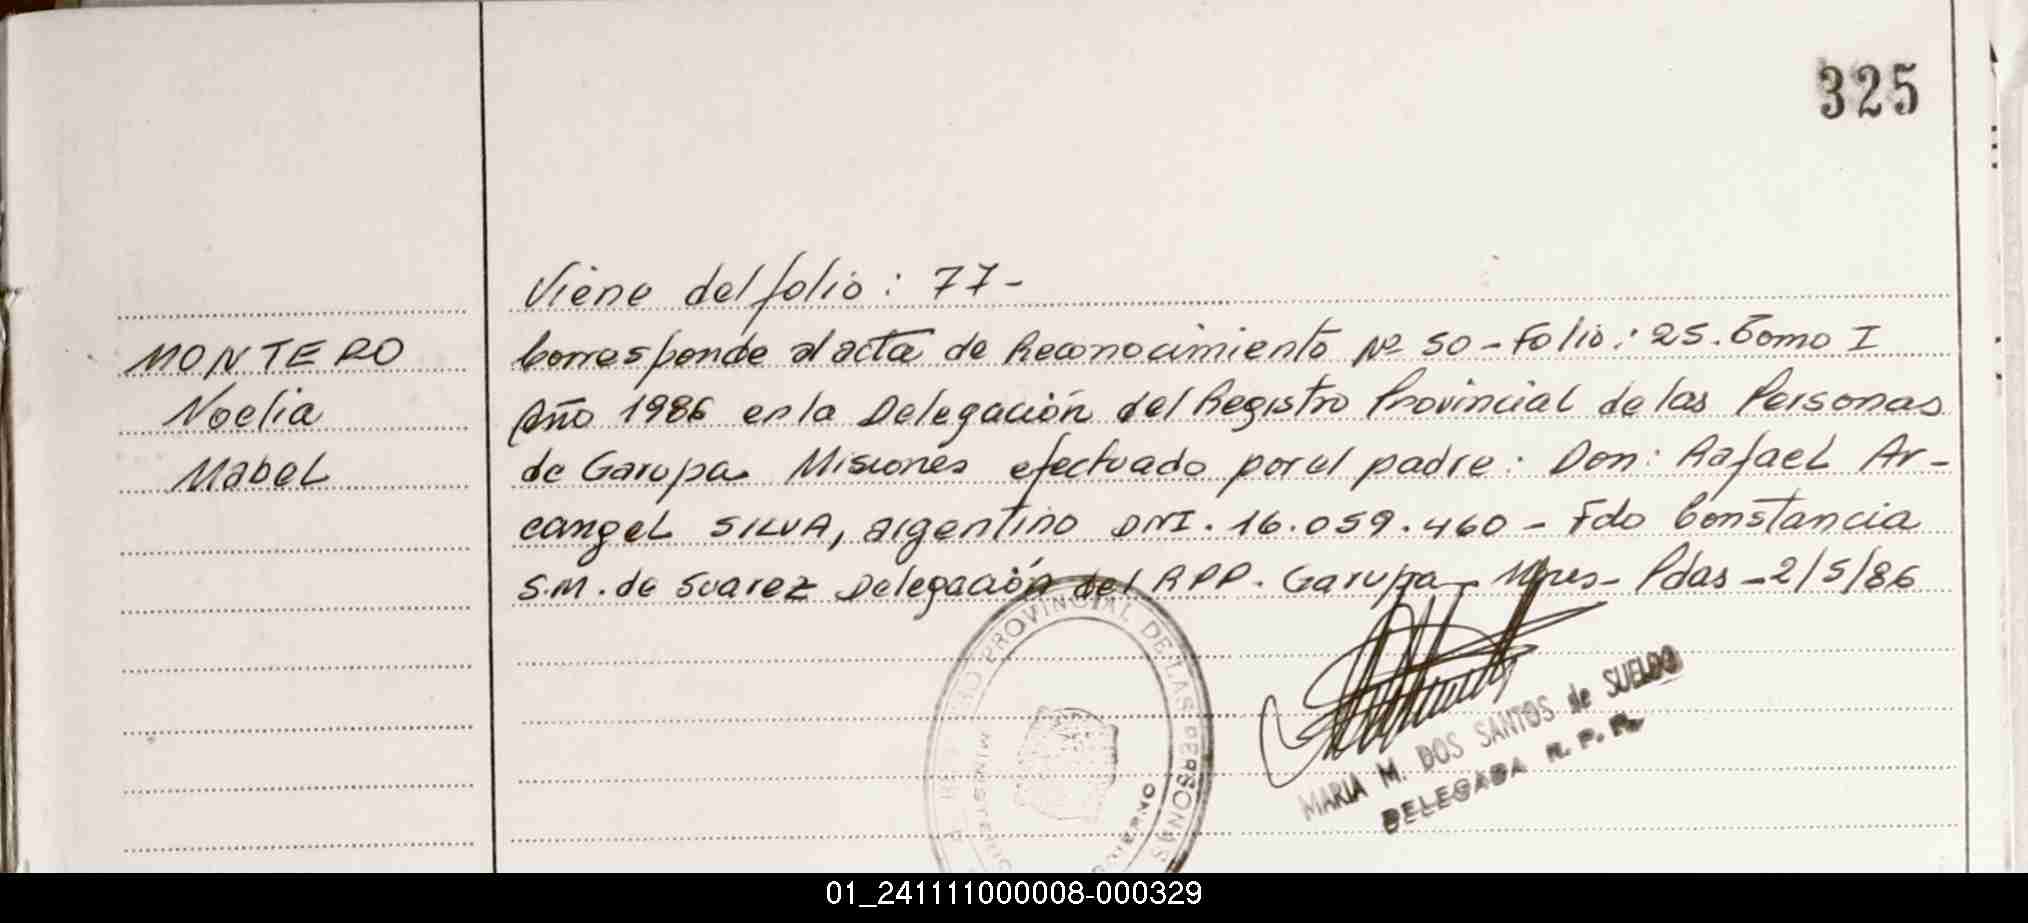 325
Viene del folio: 77-
MONTERO
Noelia
Mabel
Corresponde al acta de Reconocimiento Nº 50 - Folio: 25. Tomo I
Año 1986 en la Delegación del Registro Provincial de las Personas
de Garupa Misiones efectuado por el padre: Don: Rafael Ar-
cangel SILVA, argentino DNI. 16.059.460 - Fdo Constancia
S.M. de Suarez Delegación del RPP. Garupa - Mnes - Pdas - 2/5/86
PROVINCIAL DE LAS PERSONAS
MINISTERIO
GOBIERNO
MARIA M. DOS SANTOS de SUELDO
DELEGADA R. P. P.
01_241111000008-000329